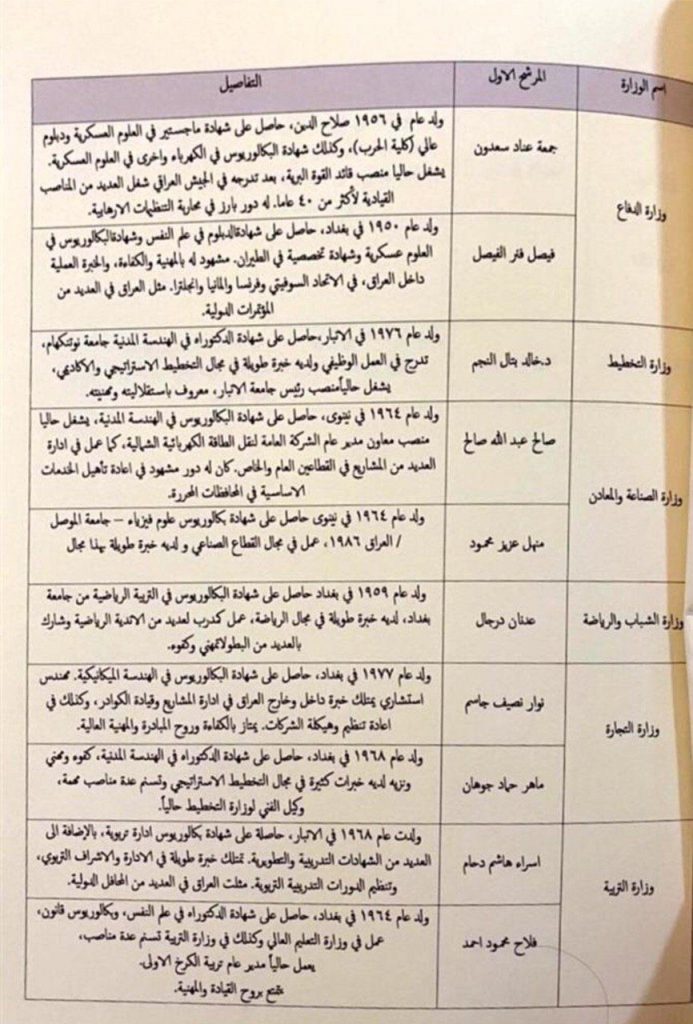 اسم الوزارة
المرشح الاول
التفاصيل
وزارة الدفاع
جمعة عناد سعدون
ولد عام في ١٩٥٦ صلاح الدين، حاصل على شهادة ماجستير في العلوم العسكرية ودبلوم
عالي (كلية الحرب)، وكذلك شهادة البكالوريوس في الكهرباء واخرى في العلوم العسكرية.
يشغل حاليا منصب قائد القوة البرية، بعد تدرجه في الجيش العراقي شغل العديد من المناصب
القيادية لأكثر من ٤٠ عاما. له دور بارز في محاربة التنظيمات الارهابية.
فيصل فنر الفيصل
ولد عام ١٩٥٠ في بغداد، حاصل على شهادةالدبلوم في علم النفس وشهادةالبكالوريوس في
العلوم عسكرية وشهادة تخصصية في الطيران. مشهود له بالمهنية والكفاءة، والخبرة العملية
داخل العراق، في الاتحاد السوفيتي وفرنسا والمانيا وانجلترا. مثل العراق في العديد من
المؤتمرات الدولية.
وزارة التخطيط
د.خالد بتال النجم
ولد عام ١٩٧٦ في الانبار،حاصل على شهادة الدكتوراه في الهندسة المدنية جامعة نوتنكهام،
تدرج في العمل الوظيفي ولديه خبرة طويلة في مجال التخطيط الاستراتيجي والاكاديمي،
يشغل حالياًمنصب رئيس جامعة الانبار، معروف باستقلاليته ومهنيته.
وزارة الصناعة والمعادن
صالح عبد الله صالح
ولد عام ١٩٦٤ في نينوى، حاصل على شهادة البكالوريوس في الهندسة المدنية، يشغل حاليا
منصب معاون مدير عام الشركة العامة لنقل الطاقة الكهربائية الشمالية، كما عمل في ادارة
العديد من المشاريع في القطاعين العام والخاص. كان له دور مشهود في اعادة تأهيل الخدمات
الاساسية في المحافظات المحررة.
منهل عزيز محمود
ولد عام ١٩٦٤ في نينوى حاصل على شهادة بكالوريوس علوم فيزياء – جامعة الموصل
/ العراق ١٩٨٦، عمل في مجال القطاع الصناعي و لديه خبرة طويلة بهذا مجال
وزارة الشباب والرياضة
عدنان درجال
ولد عام ١٩٥٩ في بغداد حاصل على شهادة البكالوريوس في التربية الرياضية من جامعة
بغداد، لديه خبرة طويلة في مجال الرياضة، عمل كمدرب لعديد من الاندية الرياضية وشارك
بالعديد من البطولاتمهني وكفوء.
وزارة التجارة
نوار نصيف جاسم
ولد عام ١٩٧٧ في بغداد، حاصل على شهادة البكالوريوس في الهندسة الميكانيكية. مهندس
استشاري يمتلك خبرة داخل وخارج العراق في ادارة المشاريع وقيادة الكوادر، وكذلك في
اعادة تنظيم وهيكلة الشركات. يمتاز بالكفاءة وروح المبادرة والمهنية العالية.
ماهر حماد جوهان
ولد عام ١٩٦٨ في بغداد، حاصل على شهادة الدكتوراه في الهندسة المدنية، كفوء ومهني
ونزيه لديه خبرات كثيرة في مجال التخطيط الاستراتيجي وتسنم عدة مناصب مهمة،
وكيل الفني لوزارة التخطيط حالياً.
وزارة التربية
اسراء هاشم دحام
ولدت عام ١٩٦٨ في الانبار، حاصلة على شهادة بكالوريوس ادارة تربوية، بالإضافة الى
العديد من الشهادات التدريبية والتطويرية. تمتلك خبرة طويلة في الادارة والاشراف التربوي،
وتنظيم الدورات التدريبية التربوية. مثلت العراق في العديد من المحافل الدولية.
فلاح محمود احمد
ولد عام ١٩٦٤ في بغداد، حاصل على شهادة الدكتوراه في علم النفس، وبكالوريوس قانون،
عمل في وزارة التعليم العالي وكذلك في وزارة التربية تسنم عدة مناصب،
يعمل حالياً مدير عام تربية الكرخ الاولى.
يتمتع بروح القيادة والمهنية.